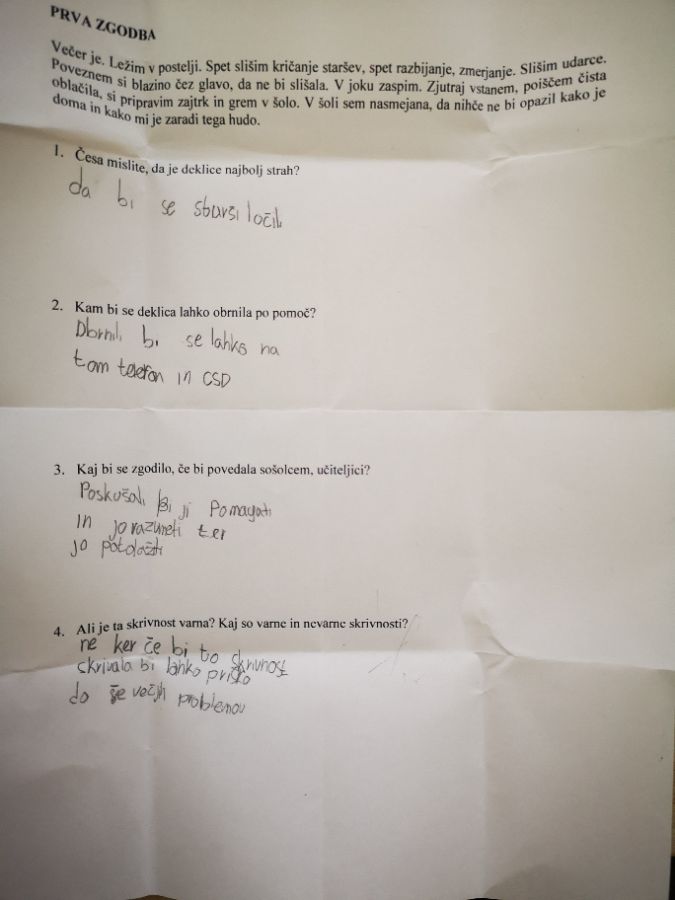 PRVA ZGODBA
Večer je. Ležim v postelji. Spet slišim kričanje staršev, spet razbijanje, zmerjanje. Slišim udarce.
Poveznem si blazino čez glavo, da ne bi slišala. V joku zaspim. Zjutraj vstanem, poiščem čista
oblačila, si pripravim zajtrk in grem v šolo. V šoli sem nasmejana, da nihče ne bi opazil kako je
doma in kako mi je zaradi tega hudo.
1. Česa mislite, da je deklice najbolj strah?
da bi se starši ločili
2. Kam bi se deklica lahko obrnila po pomoč?
Obrnili bi se lahko na
tom telefon in CSD
3. Kaj bi se zgodilo, če bi povedala sošolcem, učiteljici?
Poskušali bi ji Pomagati
in jo razumeti ter
jo potolažiti
4. Ali je ta skrivnost varna? Kaj so varne in nevarne skrivnosti?
ne ker če bi to skrivnost
skrivala bi lahko prišlo
do še večjih problemov